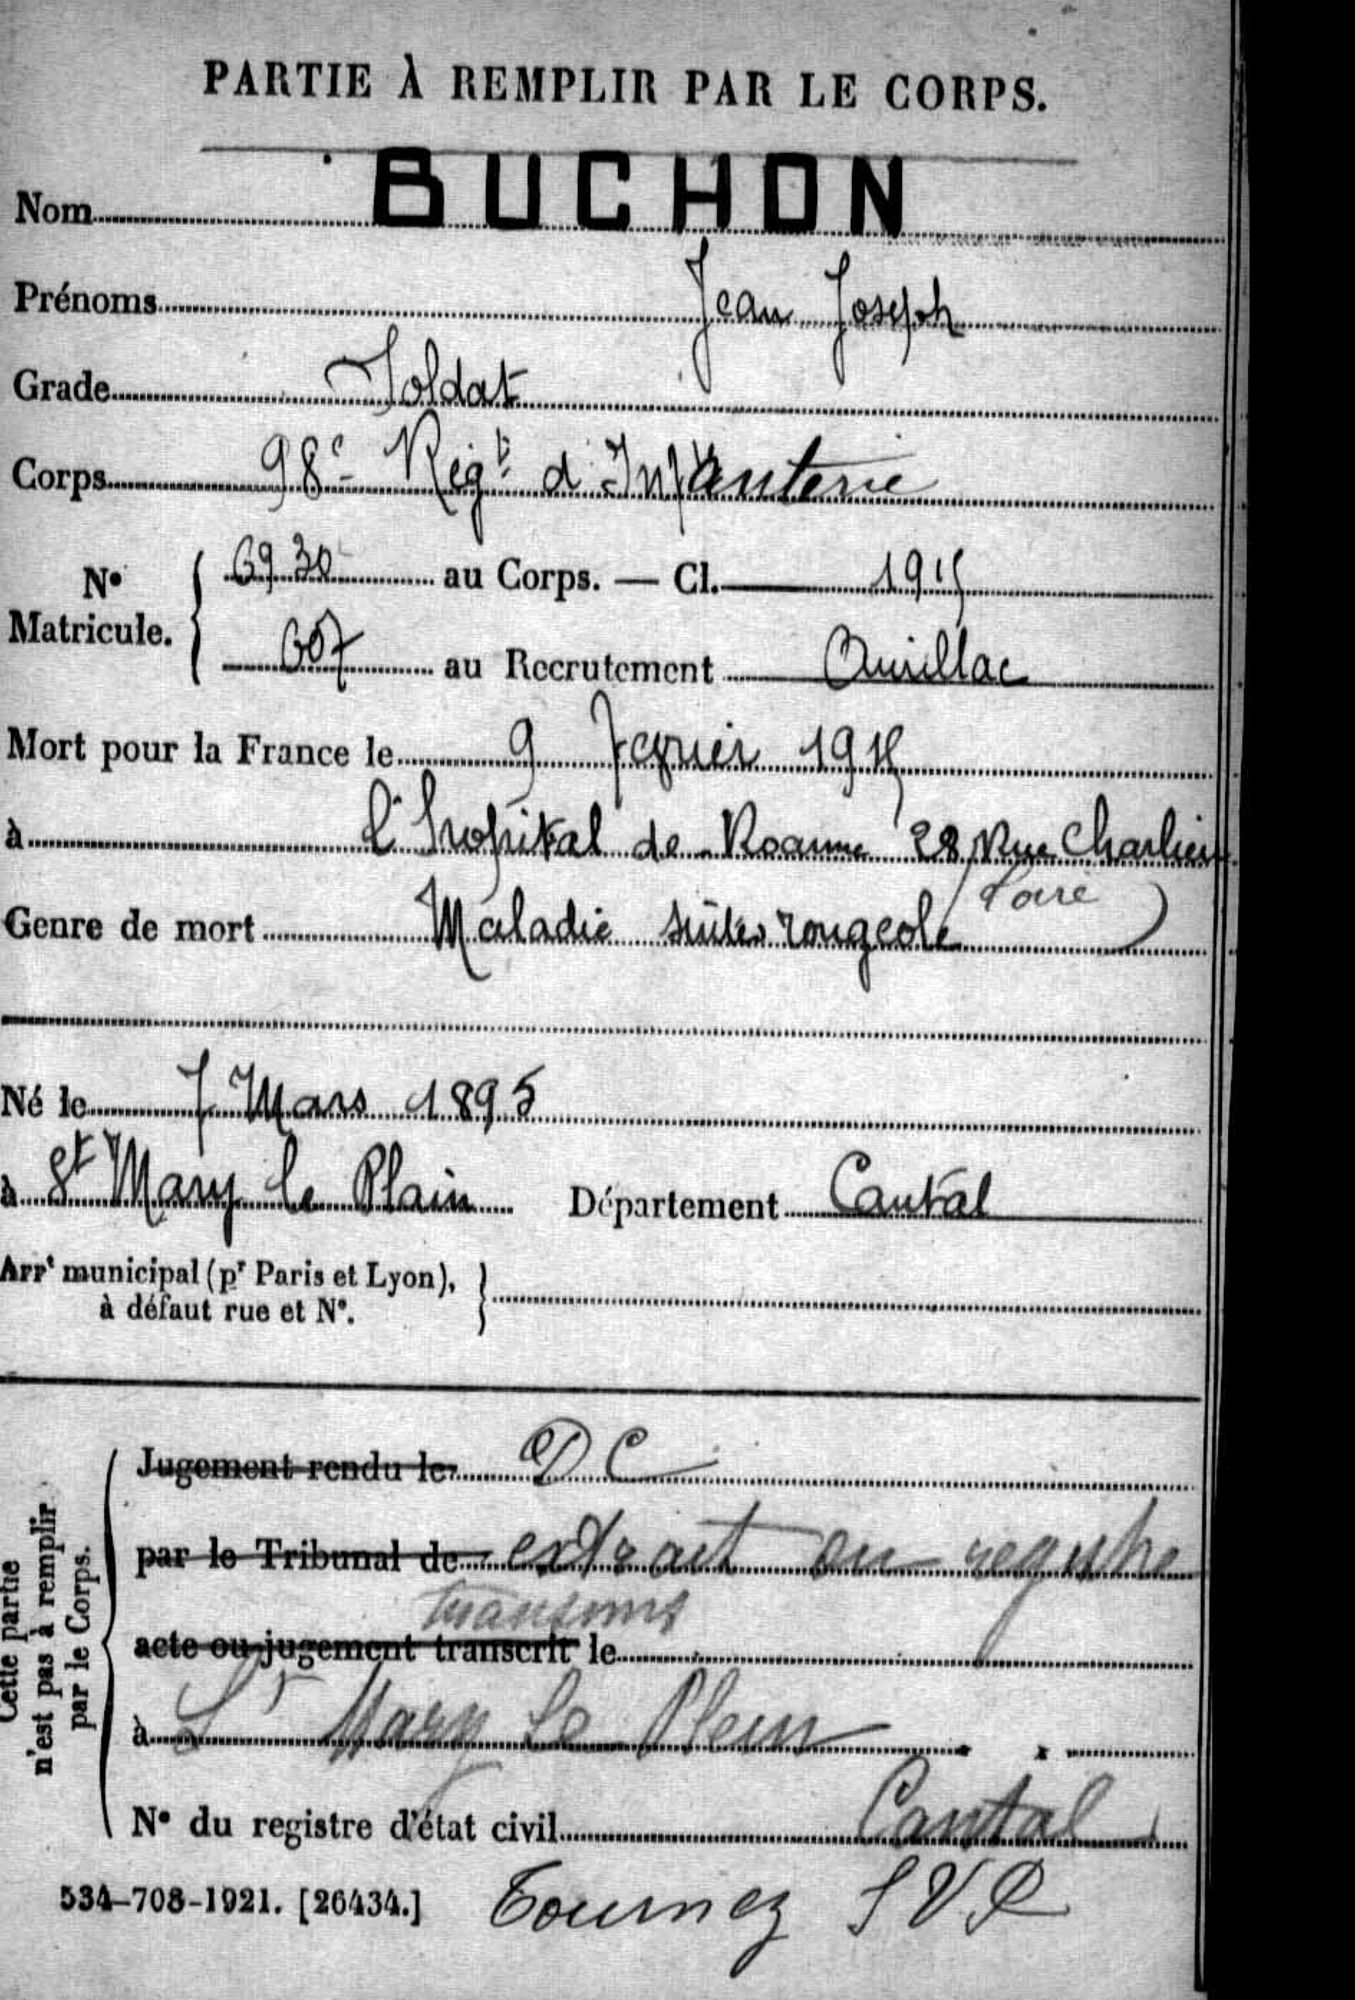 PARTIE À REMPLIR PAR LE CORPS.
Nom BUCHON
Prénoms Jean Joseph
Grade Soldat
Corps 98e Régt d'Infanterie
No Matricule. { 6930 au Corps. — Cl. 1915
607 au Recrutement Aurillac
Mort pour la France le 9 Fevrier 1915
à l'hopital de Roanne 28 Rue Charlieu
(Loire)
Genre de mort Maladie suites rougeole
Né le 7 Mars 1895
à St Mary le Plain Département Cantal
Arrt municipal (pr Paris et Lyon),
à défaut rue et No.
Cette partie
n'est pas à remplir
par le Corps.
Jugement rendu le DC
par le Tribunal de extrait au registre
transmis
acte ou jugement transcrit le
à St Mary le Plein
No du registre d'état civil Cantal
534-708-1921. [26434.] Tournez SVP